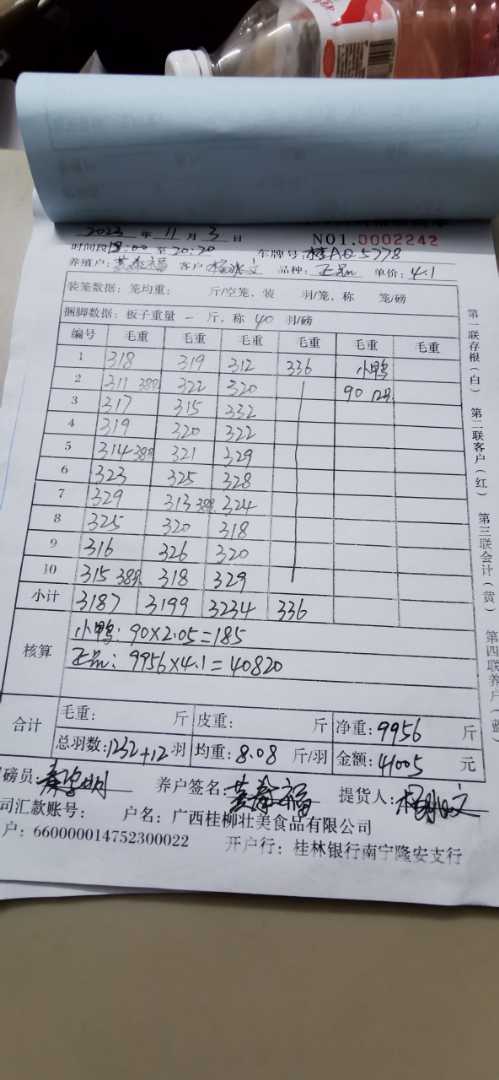 2023 年 11 月 3 日
NO1.0002242
时间段18:00 至20:20 车牌号:桂A05778
养殖户: 客户: 品种:正品 单价:4.1
装笼数据: 笼均重: 斤/空笼, 装 羽/笼, 称 笼/磅
捆脚数据: 板子重量 一 斤, 称 40 羽/磅
编号 毛重 毛重 毛重 毛重 毛重 毛重
1 318 319 312 336 小鸭
2 311 38羽 322 320 90
3 317 315 332
4 319 320 322
5 314 38羽 321 329
6 323 325 328
7 329 313 39羽 324
8 325 320 318
9 316 326 320
10 315 38羽 318 329
小计 3187 3199 3234 336
核算
小鸭: 90×2.05=185
正品: 9956×4.1=40820
合计
毛重: 斤 皮重: 斤 净重:9956 斤
总羽数:1232+12 羽 均重:8.08 斤/羽 金额:41005 元
磅员: 养户签名: 提货人:
司汇款账号: 户名: 广西桂柳壮美食品有限公司
户: 660000014752300022 开户行: 桂林银行南宁隆安支行
第一联存根(白) 第二联客户(红) 第三联会计(黄) 第四联养户(蓝)